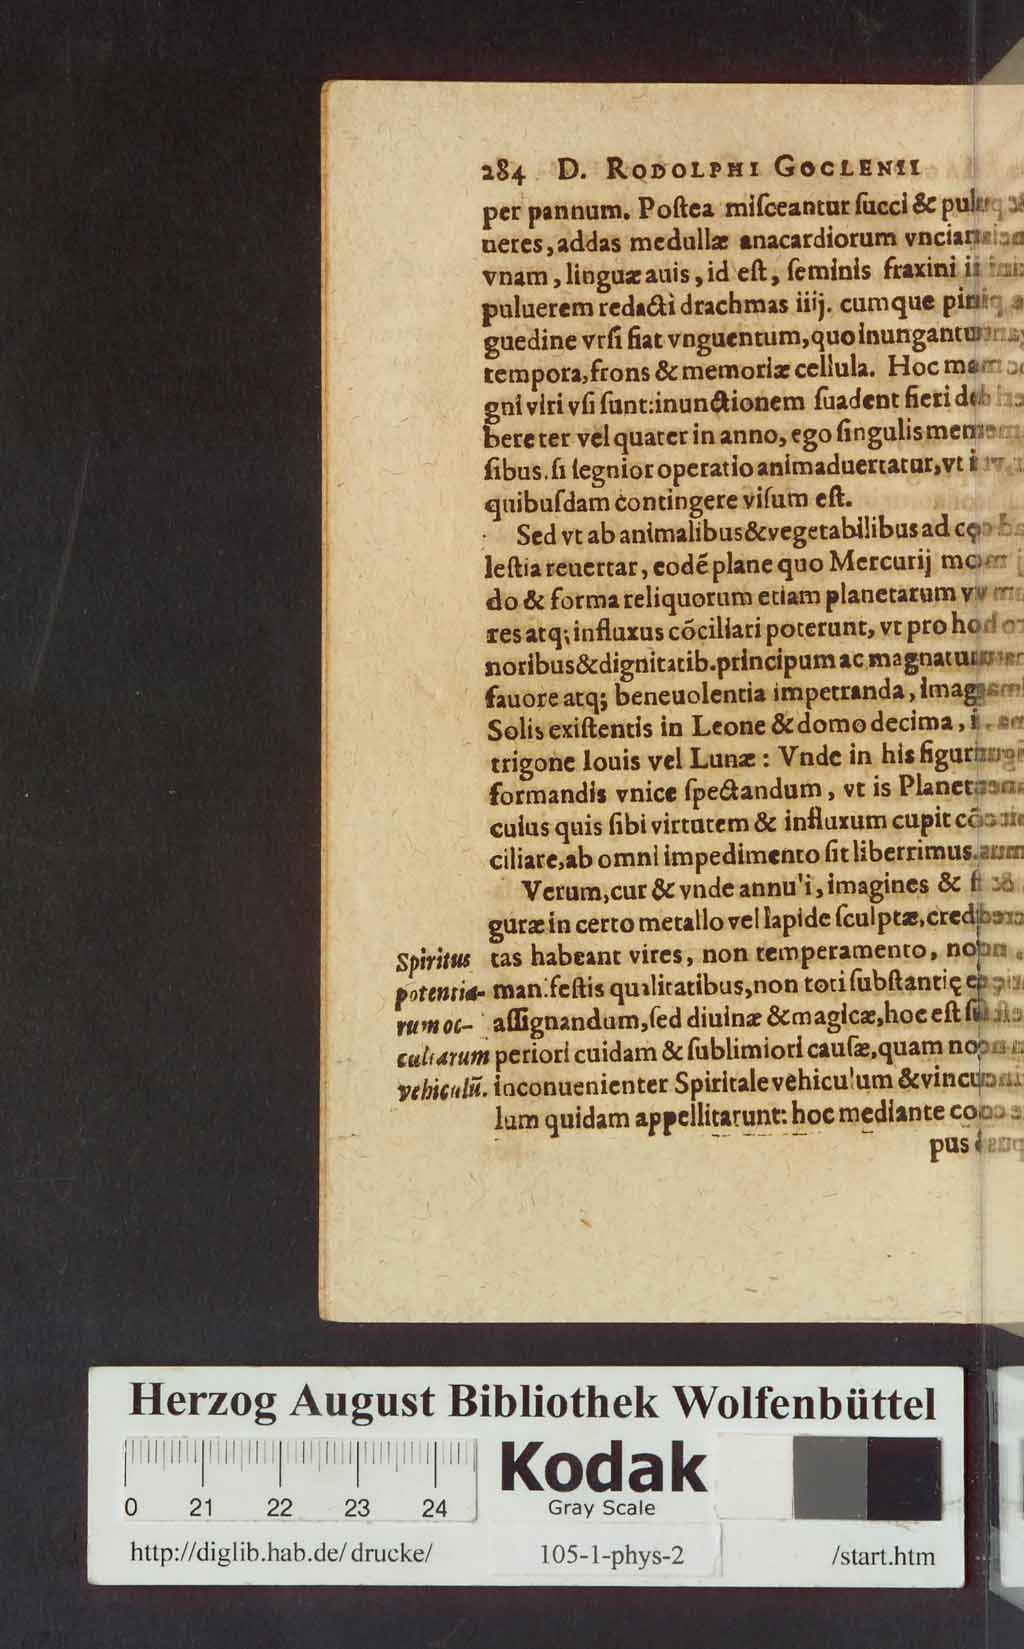 284 D. RODOLPHI GOCLENII
per pannum. Poſtea miſceantur ſucci & pul-
ueres, addas medullæ anacardiorum vnciam
vnam, linguæ auis, id eſt, ſeminis fraxini in
puluerem redacti drachmas iiij. cumque pin-
guedine vrſi fiat vnguentum, quo inungantur
tempora, frons & memoriæ cellula. Hoc ma-
gni viri vſi ſunt: inunctionem ſuadent fieri de-
bere ter vel quater in anno, ego ſingulis men-
ſibus. ſi ſegnior operatio animaduertatur, vt in
quibuſdam contingere viſum eſt.
Sed vt ab animalibus & vegetabilibus ad cę-
leſtia reuertar, eodē plane quo Mercurij mo-
do & forma reliquorum etiam planetarum vi-
res atq; influxus cōciliari poterunt, vt pro ho-
noribus & dignitatib. principum ac magnatum
fauore atq; beneuolentia impetranda, imago
Solis exiſtentis in Leone & domo decima, in
trigone Iouis vel Lunæ: Vnde in his figuris
formandis vnice ſpectandum, vt is Planeta
cuius quis ſibi virtutem & influxum cupit cō-
ciliare, ab omni impedimento ſit liberrimus.
Verum, cur & vnde annu'i, imagines & fi-
guræ in certo metallo vel lapide ſculptæ, credi-
tas habeant vires, non temperamento, non
manifeſtis qualitatibus, non toti ſubſtantię eſt
aſſignandum, ſed diuinæ & magicæ, hoc eſt ſu-
periori cuidam & ſublimiori cauſæ, quam non
inconuenienter Spiritale vehiculum & vincu-
lum quidam appellitarunt: hoc mediante cor-
pus
Spiritus
potentia-
rum oc-
cultarum
vehiculū.
Herzog August Bibliothek Wolfenbüttel
0 21 22 23 24
Kodak
Gray Scale
http://diglib.hab.de/drucke/ 105-1-phys-2 /start.htm